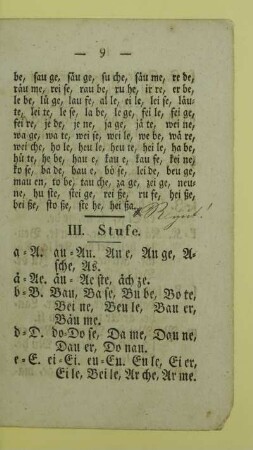 — 9 —
be, sau ge, säu ge, su che, säu me, re de,
räu me, rei se, rau be, ru he, ir re, er be,
le be, lü ge, lau fe, al le, ei le, lei se, läu=
te, lei te, le se, la be, le ge, fei le, fe ge,
fei re, je de, je ne, ja ge, jä te, wei ne,
wa ge, wa te, wei se, wei le, we be, wä re,
wei che, ho le, heu le, heu te, hei le, ha be,
hü te, he be, hau e, kau e, kau fe, kei ne,
ko se, ba de, bau e, bö se, lei de, beu ge,
mau en, to be, tau che, za ge, zei ge, neu=
ne, hu ste, stei ge, rei ße, ru fe, hei ße,
bei ße, sto ße, ste he, hei ßa.
III. Stufe.
a=A. au=Au. Au e, Au ge, A=
sche, As.
ä=Ae. äu=Ae ste, äch ze.
b=B. Bau, Ba se, Bu be, Bo te,
Bei ne, Beu le, Bau er,
Bäu me.
d=D. do=Do se, Da me, Dau ne,
Dau er, Do nau.
e=E. ei=Ei. eu=Eu. En le, Ei er,
Ei le, Bei le, Ar che, Ar me.